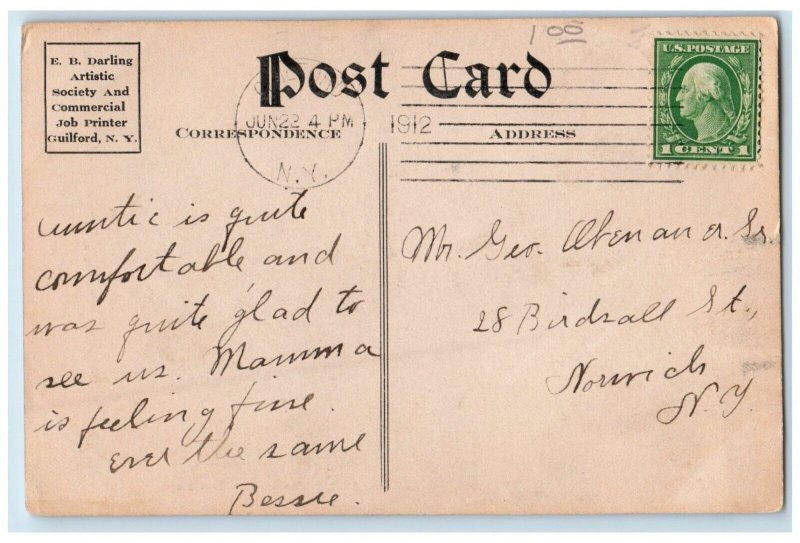 E. B. Darling
Artistic
Society And
Commercial
Job Printer
Guilford, N. Y.
Post Card
CORRESPONDENCE
ADDRESS
JUN 22 4 PM
1912
N.Y.
U.S. POSTAGE
1 CENT 1
Auntie is quite
comfortable and
was quite glad to
see us. Mamma
is feeling fine.
Ever the same
Bessie.
Mr. Geo. Sr.
28 Birdsall St.,
Norwich
N.Y.